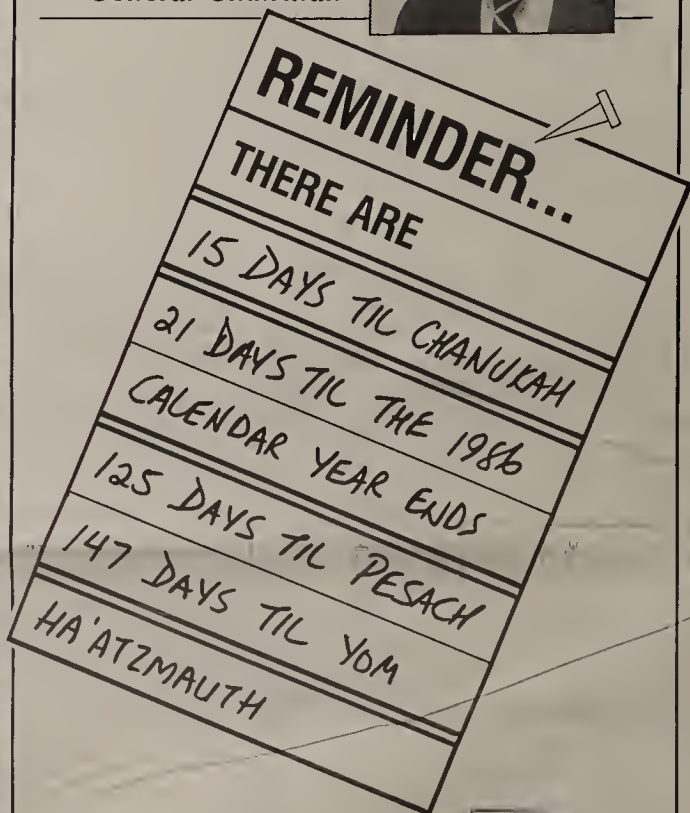 REMINDER...
THERE ARE
15 DAYS TIL CHANUKAH
21 DAYS TIL THE 1986
CALENDAR YEAR ENDS
125 DAYS TIL PESACH
147 DAYS TIL YOM
HA'ATZMAUTH